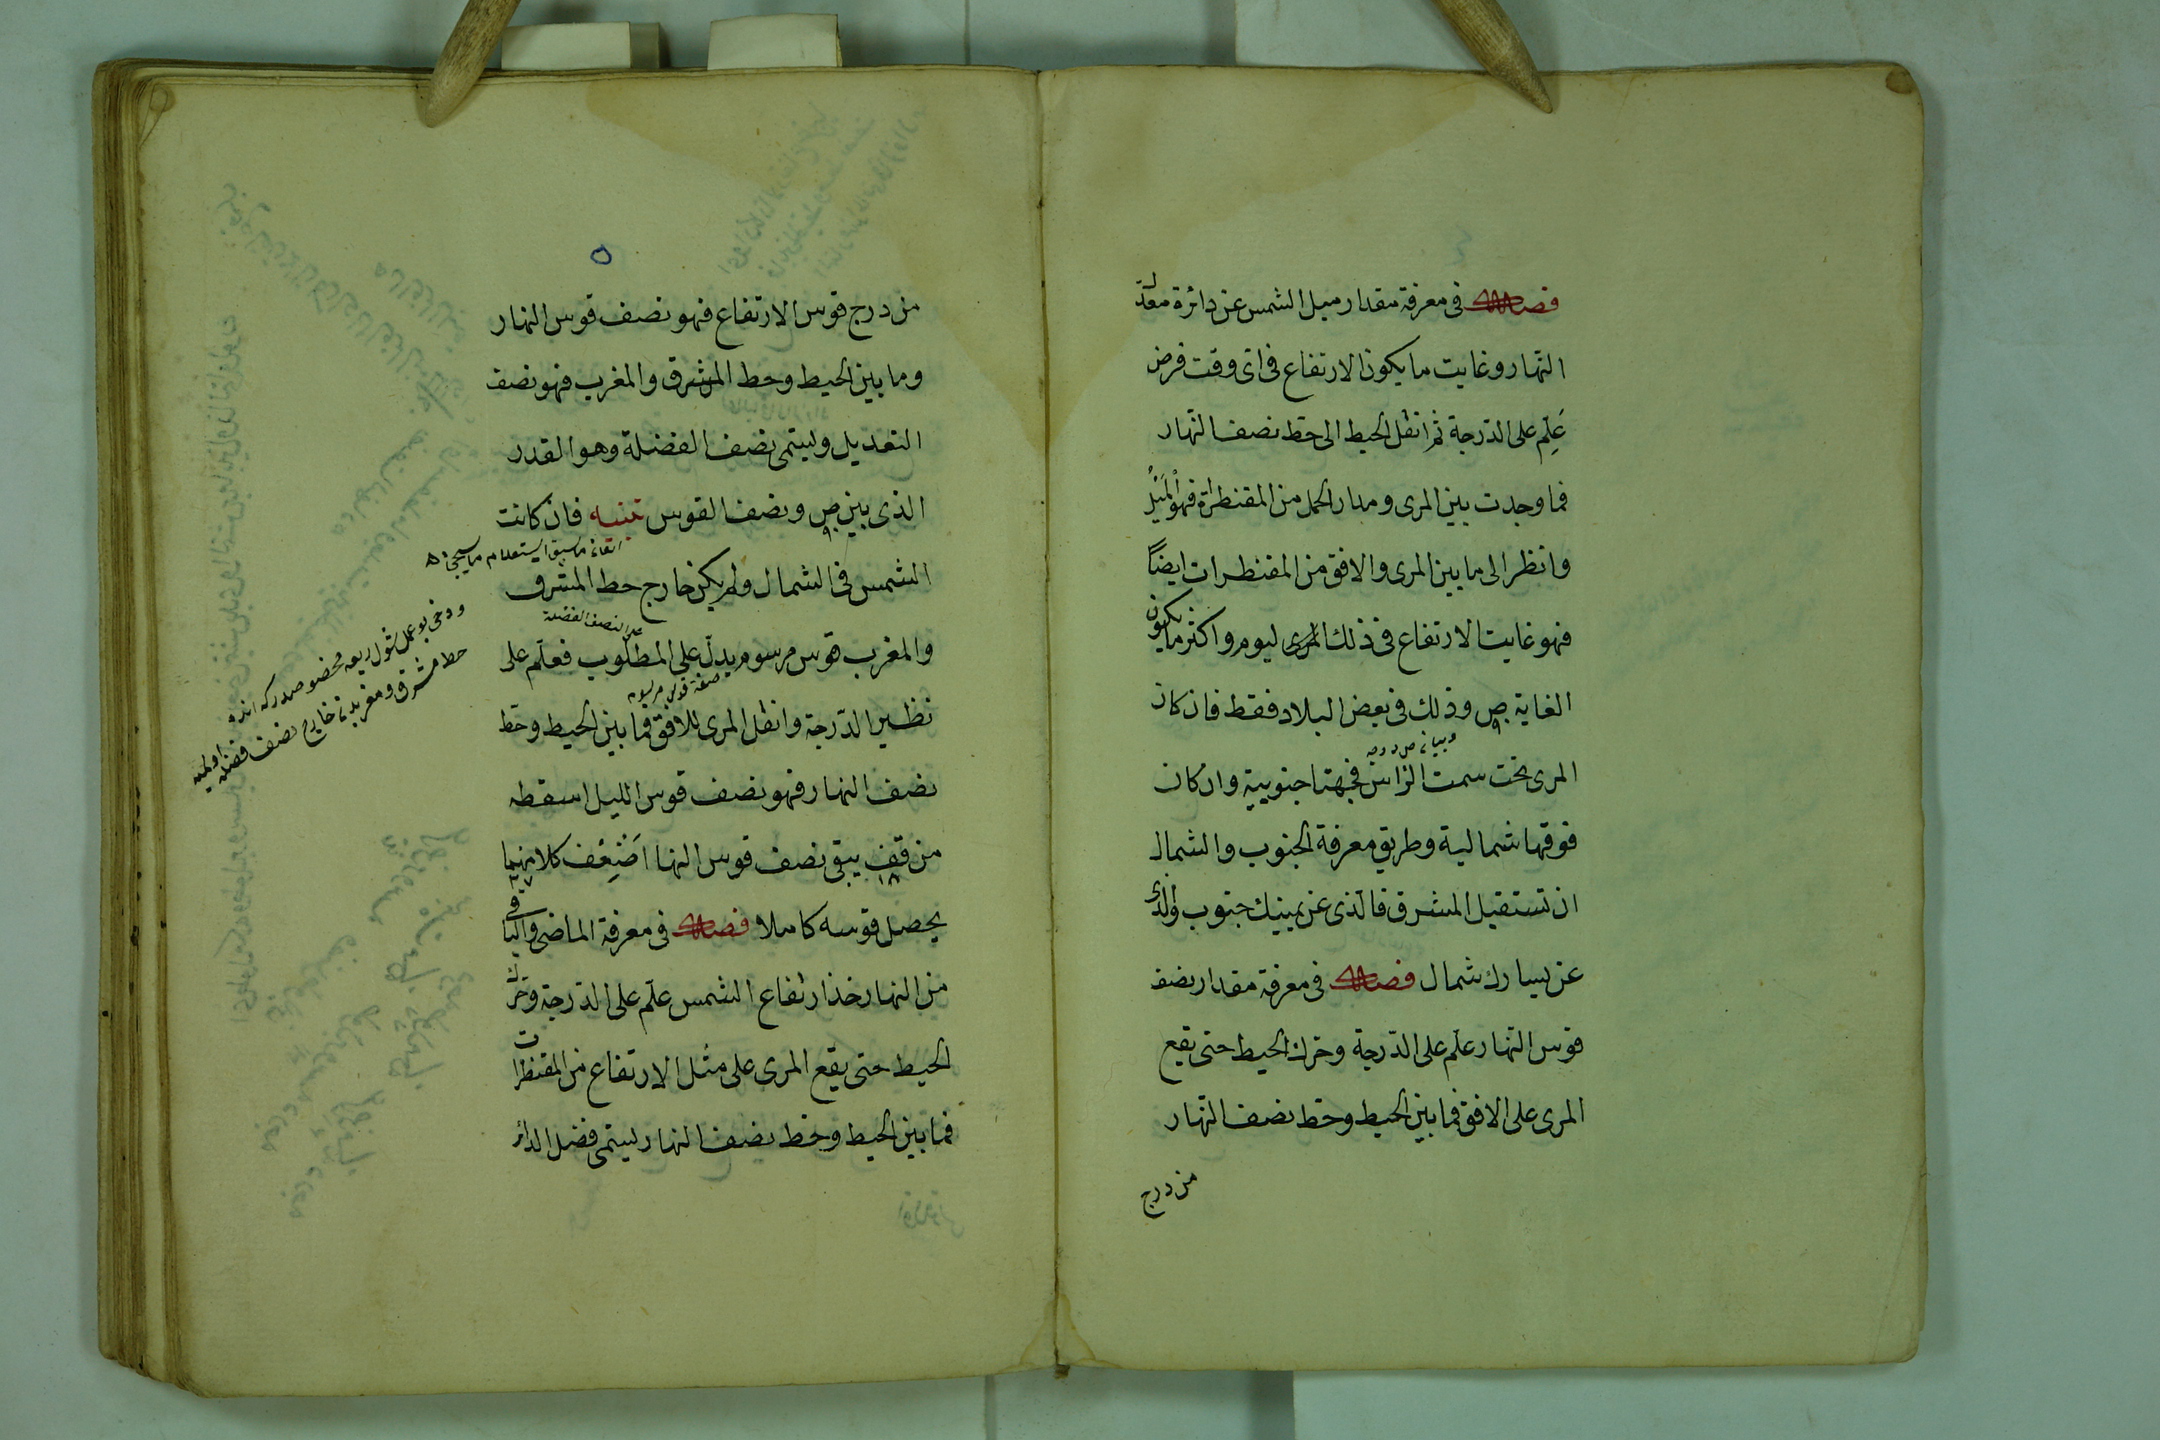 فصل في معرفة مقدار ميل الشمس عن دائرة معدل
النهار وغايت ما يكون الارتفاع في اى وقت فرض
عَلِّم على الدرجة ثم انقل الخيط الى خط نصف النهار
فما وجدت بين المرى ومدار الحمل من المقنطراة فهو الميل
وانظر الى ما بين المرى والافق من المقنطرات ايضاً
فهو غايت الارتفاع في ذلك ليوم واكثر ما يكون
الغاية ص وذلك في بعض البلاد فقط فان كان
٩٠
المرى تحت سمت الرّأس فجهتها جنوبية وان كان
فوقها شمالية وطريق معرفة الجنوب والشمال
ان تستقبل المشرق فالذى عن يمينك جنوب والذى
عن يسارك شمال فصل في معرفة مقدار نصف
قوس النهار علّم على الدّرجة وحرك الخيط حتى يقع
المرى على الافق فما بين الخيط وخط نصف النهار
من درج
٥
من درج قوس الارتفاع فهو نصف قوس النهار
وما بين الخيط وخط المشرق والمغرب فهو نصف
التعديل وليسمى نصف الفضلة وهو القدر
الذى بين ص ونصف القوس تنبيه فان كانت
٩٠
الشمس في الشمال ولم يكن خارج خط المشرق
على النصف الفضلة
والمغرب قوس مرسوم يدلّ على المطلوب فعلّم على
صفة قوس مرسوم
نظير الدّرجة وانقل المرى للافق فما بين الخيط وخط
نصف النهار فهو نصف قوس الليل اسقطه
من قف يبقى نصف قوس النها اَضْعِف كلا منهما
١٨٠
يحصل قوسه كاملا فصل في معرفة الماضى والباقى
من النهار خذ ارتفاع الشمس علّم على الدّرجة وحرك
الخيط حتى يقع المرى على مثل الارتفاع من المقنطرات
فما بين الخيط وخط نصف النهار ليسمى فضل الدائر
خط مشرق ومغربدن خارج نصف فضله